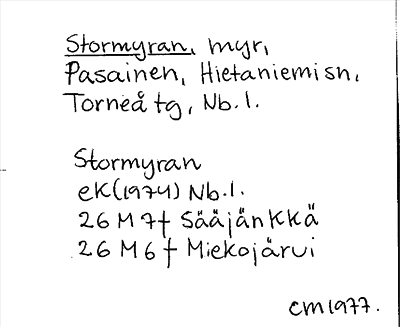 Stormyran, myr,
Pasainen, Hietaniemi sn,
Torneå tg, Nb.l.
Stormyran
eK(1974) Nb.l.
26 M 7f Sääjänkkä
26 M 6 f Miekojärvi
CM1977.